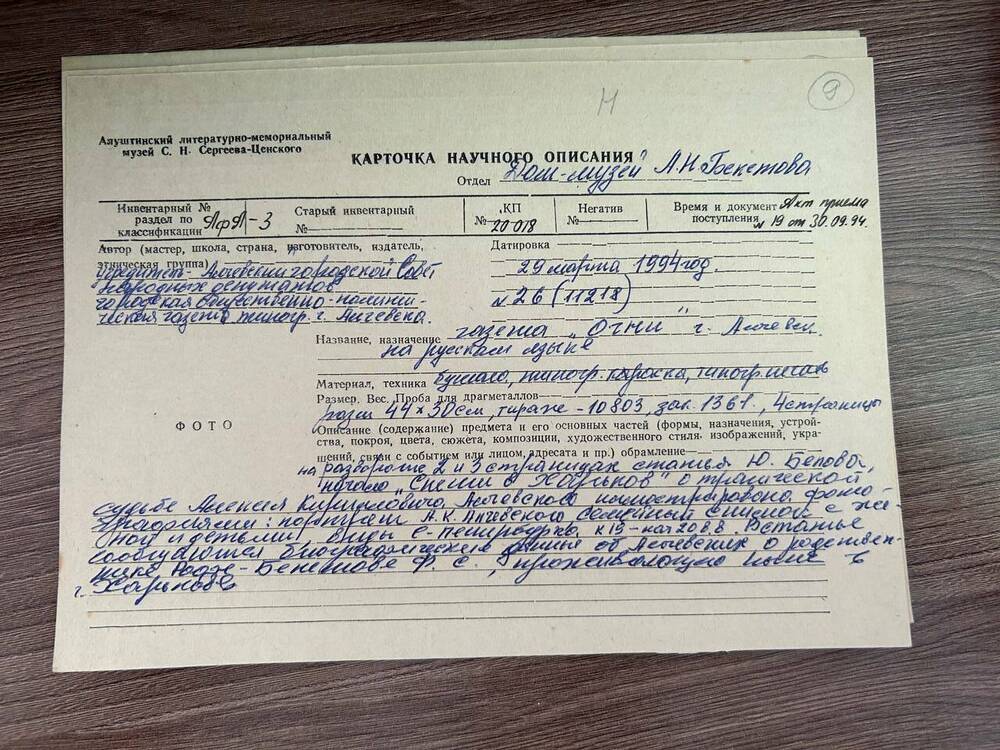 Н
9
Алуштинский литературно-мемориальный
музей С. Н. Сергеева-Ценского
КАРТОЧКА НАУЧНОГО ОПИСАНИЯ
Отдел Дом-музей А.Н. Бекетова
Инвентарный №
раздел по
классификации АфА-3
Старый инвентарный
№
КП
№ 20018
Негатив
№
Время и документ Акт приема
поступления № 19 от 30.09.94.
Автор (мастер, школа, страна, изготовитель, издатель,
этническая группа)
учредитель - Алчевский городской Совет
народных депутатов
городская общественно-полити-
ческая газета типогр. г. Алчевска.
Датировка
29 марта 1994 год.
№ 26 (11218)
Название, назначение газета „Огни" г. Алчевск.
на русском языке
Материал, техника бумага, типогр. краска, типогр. печать
Размер. Вес. Проба для драгметаллов
разм 44×30 см, тираж - 10803, зак. 1361, 4 страницы
ФОТО
Описание (содержание) предмета и его основных частей (формы, назначения, устрой-
ства, покроя, цвета, сюжета, композиции, художественного стиля изображений, укра-
шений, связи с событием или лицом, адресата и пр.) обрамление
на развороте 2 и 3 страницах статья Ю. Белова,
начало „Спеши в Харьков" о трагической
судьбе Алексея Кирилловича Алчевского иллюстрирована фото-
графиями: портрет А.К. Алчевского семейный снимок с же-
ной и детьми виды С-Петербурга к 19 - нач 20 в в. В статье
сообщаются биографические данные об Алчевских о родствен-
нике Ф. С., проживающую ныне в
г. Харькове